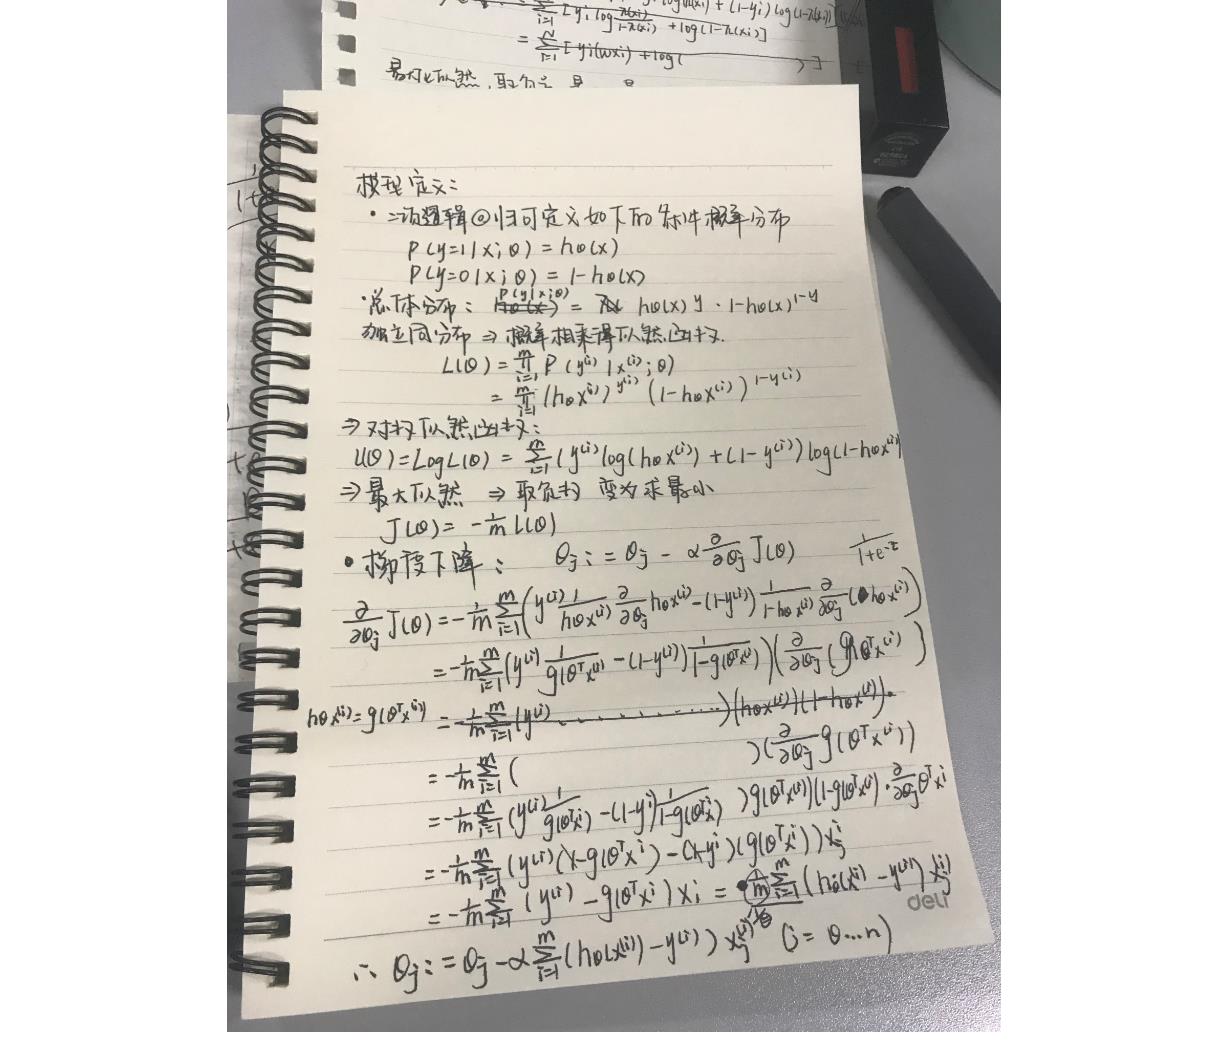 = Σ_{i=1}^{N} [ y_i log π(x_i)/(1-π(x_i)) + log(1-π(x_i)) ]
= Σ_{i=1}^{N} [ y_i(wx_i) + log( ) ]
模型定义：
· 二项逻辑回归可定义如下的条件概率分布
P(y=1|x;θ) = hθ(x)
P(y=0|x;θ) = 1-hθ(x)
·总体分布： P(y|x;θ) = hθ(x)^y · 1-hθ(x)^{1-y}
独立同分布 ⇒ 概率相乘得似然函数.
L(θ) = Π_{i=1}^{m} P(y^{(i)}|x^{(i)};θ)
= Π_{i=1}^{m} (hθx^{(i)})^{y^{(i)}} (1-hθx^{(i)})^{1-y^{(i)}}
⇒对数似然函数：
l(θ)=LogL(θ) = Σ_{i=1}^{m} (y^{(i)}log(hθx^{(i)}) + (1-y^{(i)})log(1-hθx^{(i)})
⇒最大似然 ⇒ 取负数 变为求最小
J(θ) = -1/m l(θ)
• 梯度下降： θj := θj - α ∂/∂θj J(θ) 1/(1+e^{-z})
∂/∂θj J(θ) = -1/m Σ_{i=1}^{m} (y^{(i)} 1/hθx^{(i)} ∂/∂θj hθx^{(i)} - (1-y^{(i)}) 1/(1-hθx^{(i)}) ∂/∂θj (hθx^{(i)})
= -1/m Σ_{i=1}^{m} (y^{(i)} 1/g(θ^T x^{(i)}) - (1-y^{(i)}) 1/(1-g(θ^T x^{(i)})) ) (∂/∂θj (g(θ^T x^{(i)})
hθx^{(i)} = g(θ^T x^{(i)}) = -1/m Σ_{i=1}^{m} (y^{(i)} ........ )(hθx^{(i)})(1-hθx^{(i)}).
= -1/m Σ_{i=1}^{m} ( )(∂/∂θj g(θ^T x^{(i)}))
= -1/m Σ_{i=1}^{m} (y^{(i)} 1/g(θ^T x^i) - (1-y^i) 1/(1-g(θ^T x^i)) )g(θ^T x^{(i)})(1-g(θ^T x^{(i)}) · ∂/∂θj θ^T x^i
= -1/m Σ_{i=1}^{m} (y^{(i)}(1-g(θ^T x^i) - (1-y^i)(g(θ^T x^i)) x_j^i
= -1/m Σ_{i=1}^{m} (y^{(i)} - g(θ^T x^i) x_i = 1/m Σ_{i=1}^{m} (hθ(x^{(i)} - y^{(i)}) x_j^{(i)}
deli
∴ θj := θj - α Σ_{i=1}^{m} (hθ(x^{(i)}) - y^{(i)}) x_j^{(i)} (j = 0...n)